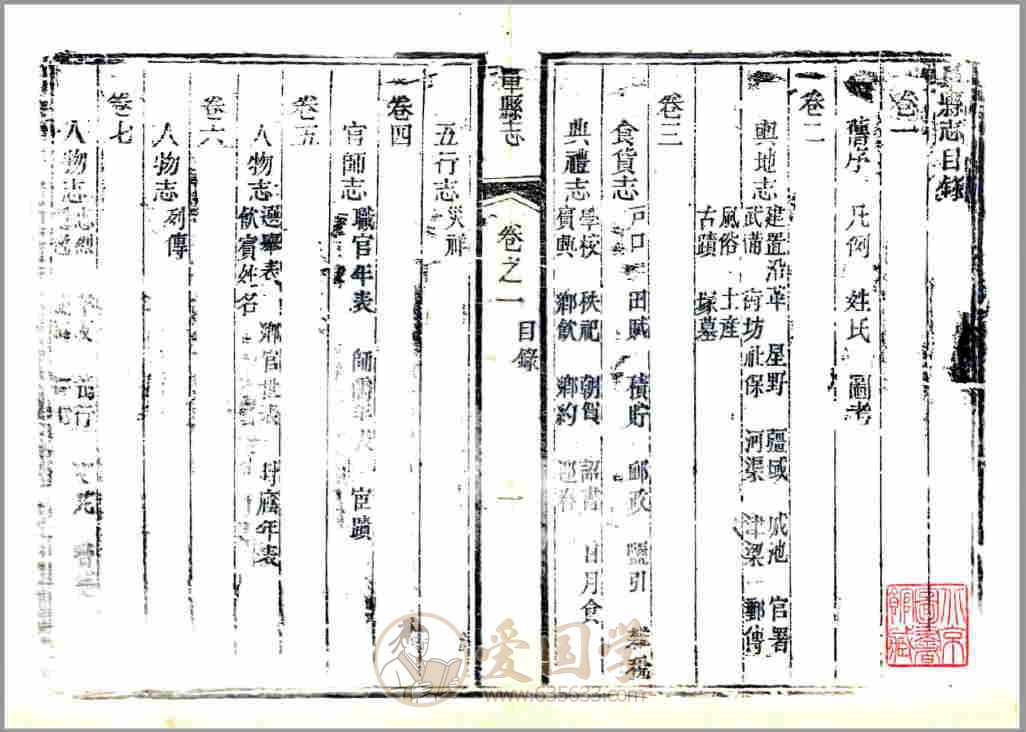 縣志目錄
卷一
舊序 凡例 姓氏 圖考
卷二
輿地志 建置沿革 星野 疆域 城池 官署
武備 街坊社保 河渠 津梁 郵傳
風俗 土產
古蹟 塚墓
卷三
食貨志 戶口 田賦 積貯 郵政 鹽引 稅
典禮志 學校 秩祀 朝賀 詔書 日月食
賓興 鄉飲 鄉約 迎春
單縣志 卷之一 目錄 一
五行志 災祥
卷四
官師志 職官年表 師儒年表 宦蹟
卷五
人物志 選舉表 鄉官世表 封廕年表
飲賓姓名
卷六
人物志 列傳
卷七
人物志 忠烈
北京圖書館藏
爱国学
www.635633.com